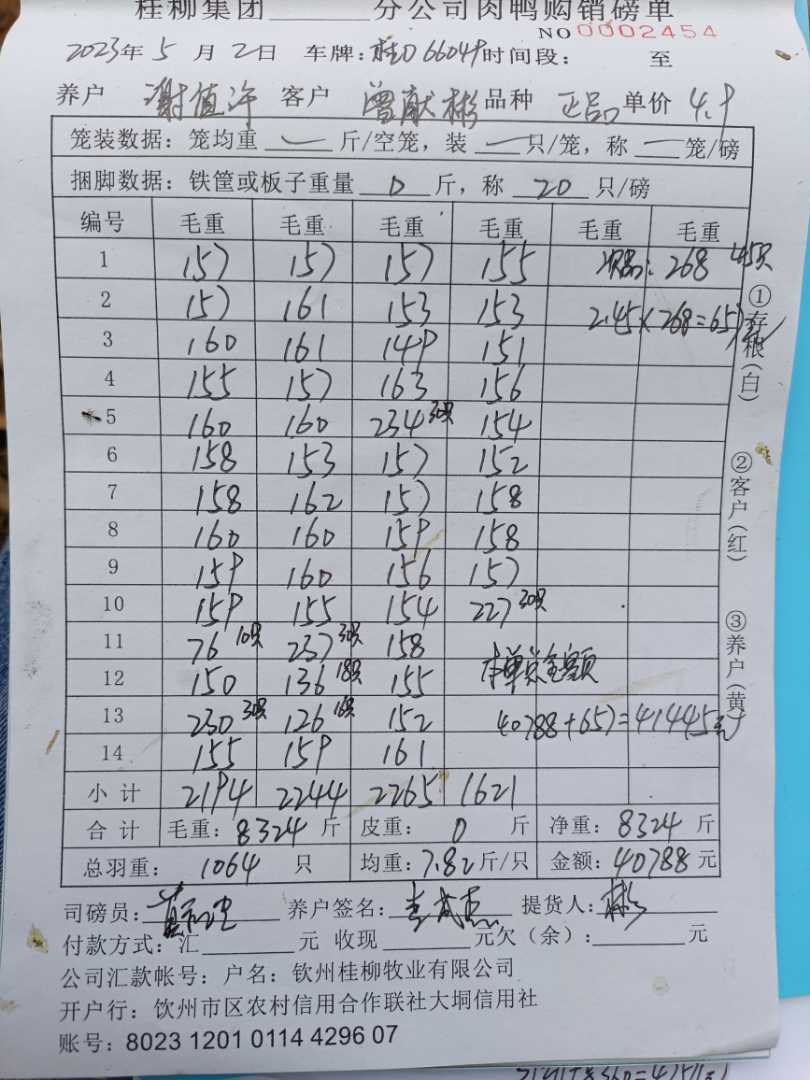 桂柳集团______分公司肉鸭购销磅单
NO 0002454
2023年 5 月 2日 车牌:桂D66049 时间段: 至
养户 谢值许 客户 曾献彬 品种 正品 单价 4.9
笼装数据: 笼均重 ____ 斤/空笼, 装 ____ 只/笼, 称 ____ 笼/磅
捆脚数据: 铁筐或板子重量 0 斤, 称 20 只/磅
编号 毛重 毛重 毛重 毛重 毛重 毛重
1 157 157 157 155 次品: 268 45只
2 157 161 153 153 2.45×268=657元
3 160 161 149 151
4 155 157 163 156
5 160 160 234 30只 154
6 158 153 157 152
7 158 162 157 158
8 160 160 159 158
9 159 160 156 157
10 159 155 154 227 30只
11 76 10只 237 30只 158
12 150 136 18只 155 本单总金额
13 230 30只 126 16只 152 40788+657=41445元
14 155 159 161
小计 2194 2244 2265 1621
合计 毛重: 8324 斤 皮重: 0 斤 净重: 8324 斤
总羽重: 1064 只 均重: 7.82 斤/只 金额: 40788 元
司磅员: 养户签名: 提货人: 彬
付款方式: 汇______元 收现______元欠(余):______元
公司汇款帐号: 户名: 钦州桂柳牧业有限公司
开户行: 钦州市区农村信用合作联社大垌信用社
账号: 8023 1201 0114 4296 07
①存根(白)
②客户(红)
③养户(黄)